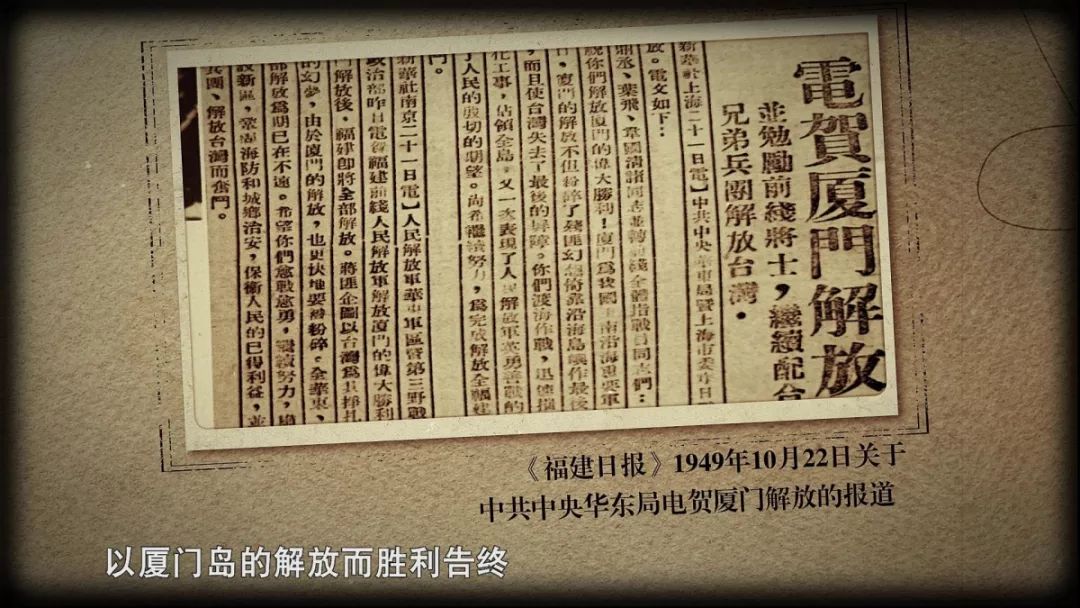 電賀厦門解放
並勉勵前綫將士，繼續配合
兄弟兵團解放台灣．
新華社上海二十一日電】中共中央華東局暨上海市委昨日
放。電文如下：
鼎丞、葉飛、韋國清諸同志並轉前綫全體指戰員同志們：
你們解放厦門的偉大勝利！厦門爲我國東南沿海重要軍
，厦門的解放不但粉碎了殘匪幻想倚靠沿海島嶼作最後
，而且使台灣失去了最後的屏障。你們渡海作戰，迅速摧
化工事，佔領全島，又一次表現了人民解放軍英勇善戰的
了人民的殷切的期望。尚希繼續努力，爲完成解放全福建
鬥。
新華社南京二十一日電】人民解放軍華東軍區暨第三野戰
政治部昨日電賀福建前綫人民解放軍解放厦門的偉大勝利
門解放後，福建卽將全部解放。蔣匪企圖以台灣爲其掙扎
的幻夢，由於厦門的解放，也更快地要被粉碎。全華東，
部解放爲期已在不遠。希望你們愈戰愈勇，繼續努力，
設新區，鞏固海防和城鄉治安，保衛人民的已得利益，並
兵團、解放台灣而奮鬥。
《福建日报》1949年10月22日关于
中共中央华东局电贺厦门解放的报道
以厦门岛的解放而胜利告终